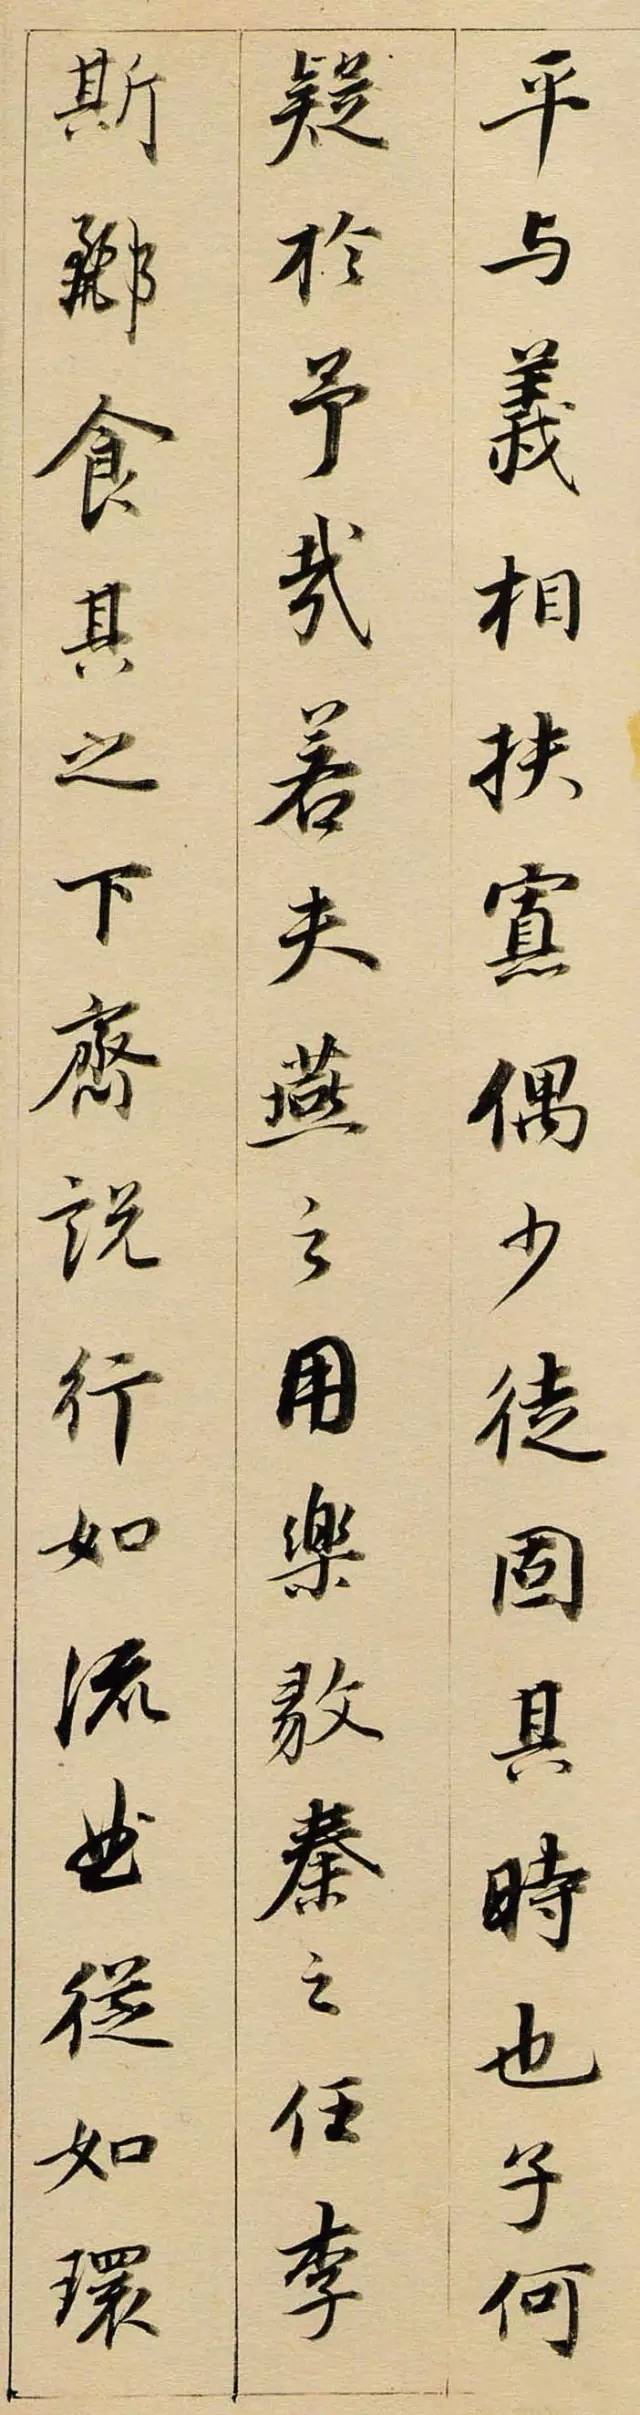 平与義相扶寡偶少徒固其時也子何
疑於予哉若夫燕之用樂毅秦之任李
斯酈食其之下齊説行如流曲從如環